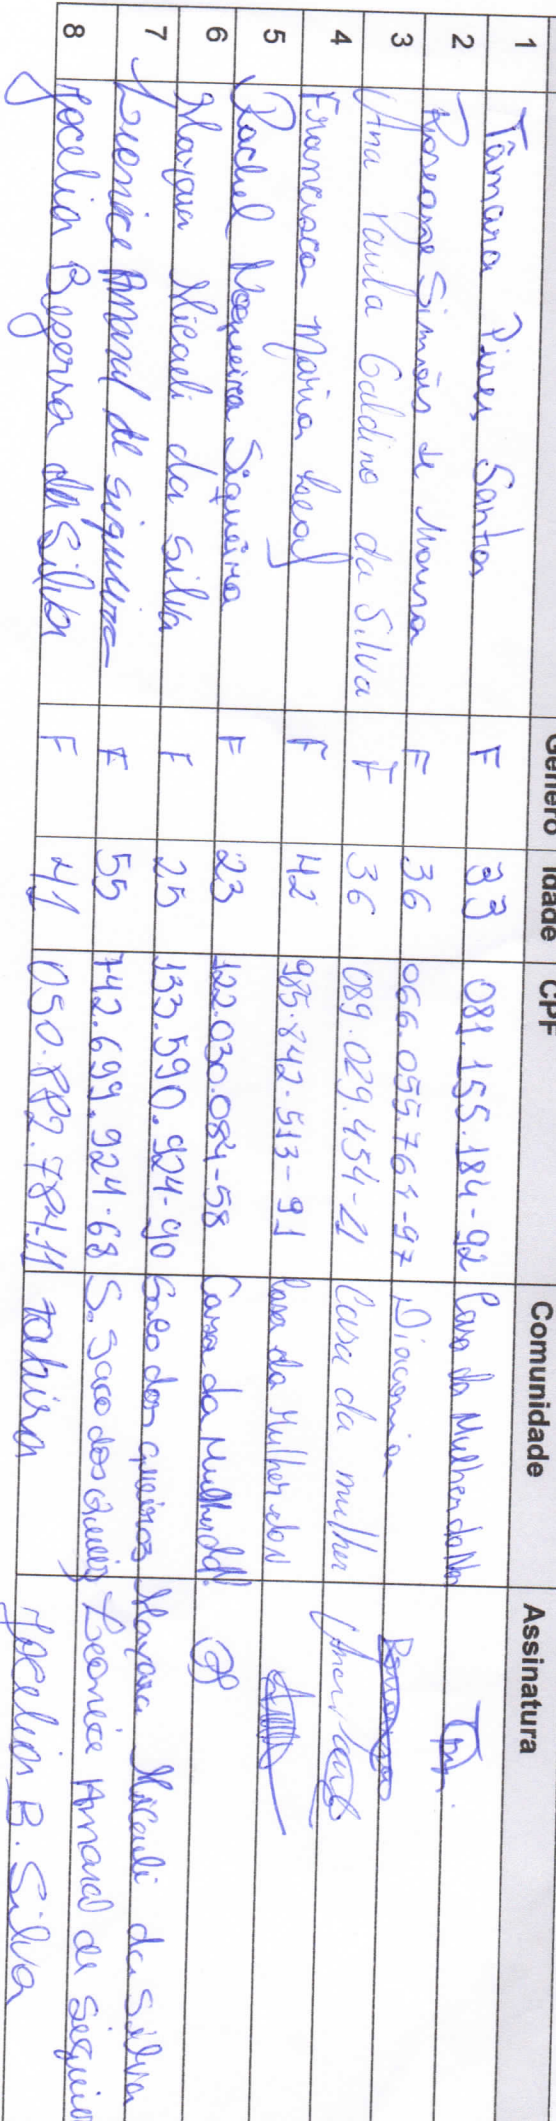 Gênero Idade CPF Comunidade Assinatura
1 Tâmara Pires Santos F 33 081.155.184-92 Casa da Mulher do No
2 Roseane Simões de Moura F 36 066.055764-97 Diaconia
3 Ana Paula Galdino da Silva F 36 089.029.454-21 Casa da mulher Ana Paula
4 Francisca Maria Leal F 42 985.842.513-91 Casa da Mulher do N
5 Rachel Nogueira Siqueira F 23 122.030.084-58 Casa da Mulher do N
6 Mayara Micaeli da Silva F 25 133.590.924-90 dos queiros Mayara Micaeli da Silva
7 Leonice Amaral de siqueira F 55 742.699.924-68 S. dos Leonice Amaral de Sesqueira
8 Jocelia Bezerra da Silva F 41 050.882.784-11 tabira Jocelia B. Silva